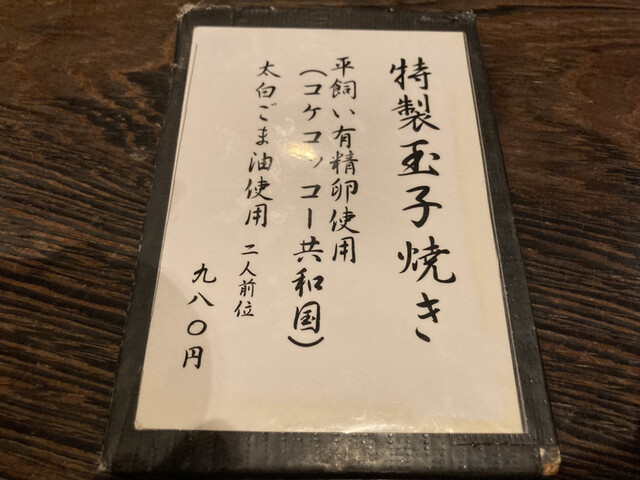 特製玉子焼き
平飼い有精卵使用
(コケコッコー共和国)
太白ごま油使用 二人前位
九八〇円